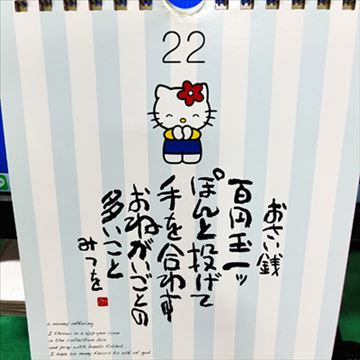 22
おさい銭
百円玉一ッ
ぽんと投げて
手を合わす
おねがいごとの
多いこと
みつを
a money offering
I throw in a 100-yen coin
in the collection box
and pray with hands folded.
I have so many favors to ask of god